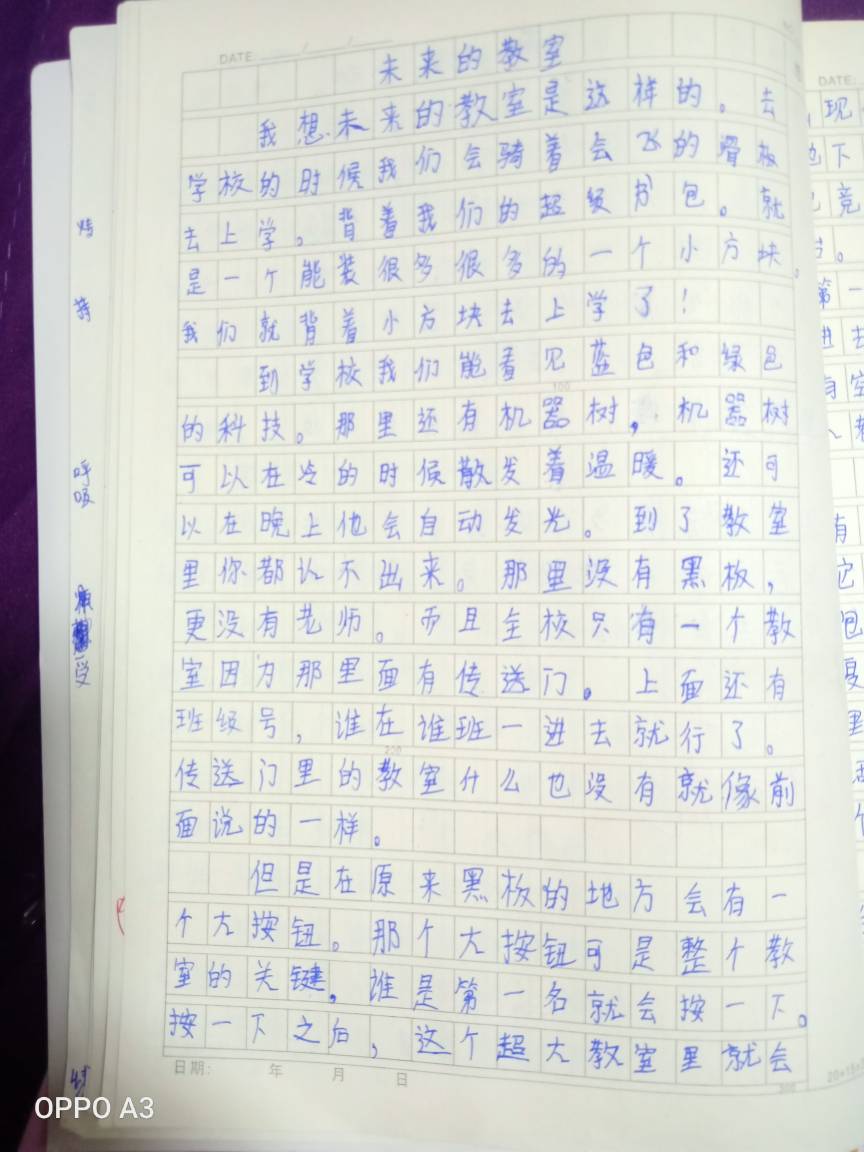 DATE
未来的教室
我想未来的教室是这样的。去
学校的时候我们会骑着会飞的滑板
去上学。背着我们的超级书包。就
是一个能装很多很多的一个小方块。
我们就背着小方块去上学了！
到学校我们能看见蓝色和绿色
100
的科技。那里还有机器树，机器树
可以在冷的时候散发着温暖。还可
以在晚上他会自动发光。到了教室
里你都认不出来。那里没有黑板，
更没有老师。而且全校只有一个教
室因为那里面有传送门。上面还有
班级号，谁在谁班一进去就行了。
200
传送门里的教室什么也没有就像前
面说的一样。
但是在原来黑板的地方会有一
个大按钮。那个大按钮可是整个教
室的关键，谁是第一名就会按一下。
按一下之后，这个超大教室里就会
日期： 年 月 日
300
OPPO A3
DATE
现
地下
竞
第一
进去
有
它
包
里